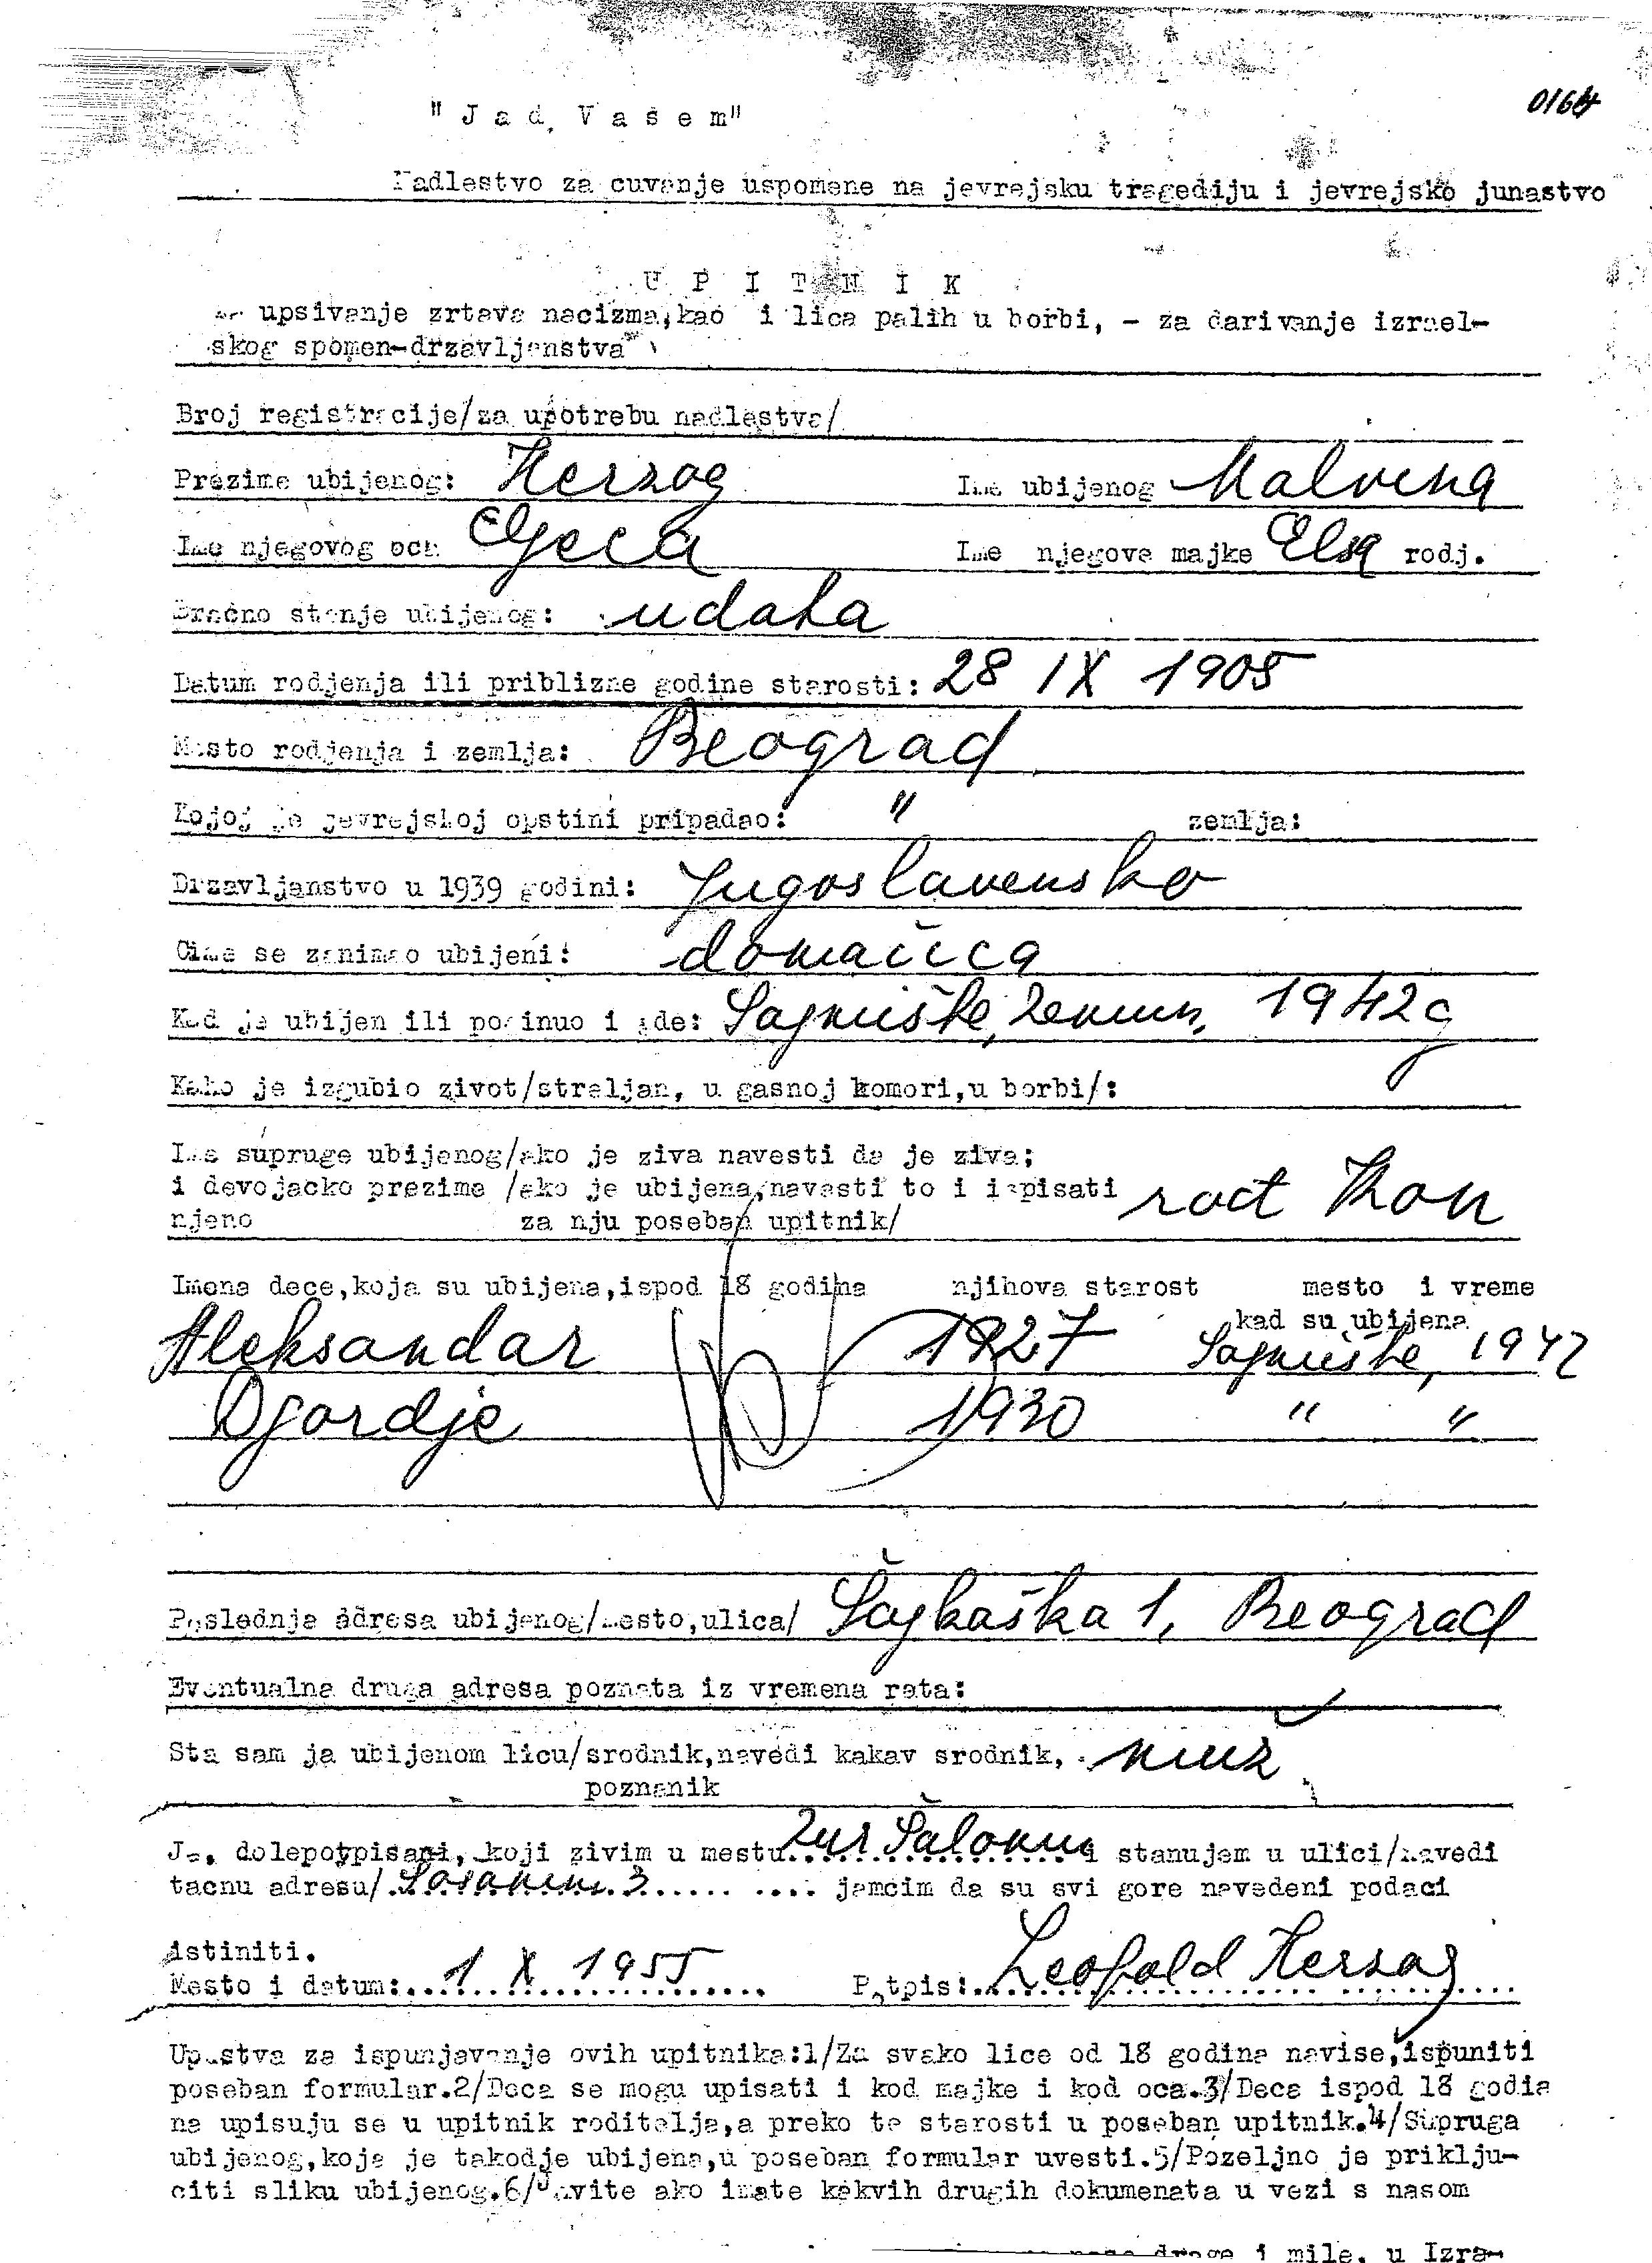 0164
"Jad Vašem"
Nadlestvo za cuvanje uspomene na jevrejsku tragediju i jevrejsko junastvo
U P I T N I K
za upsivanje zrtava nacizma, kao i lica palih u borbi, - za darivanje izrael-
skog spomen-drzavljanstva
Broj registracije/za upotrebu nadlestva/
Prezime ubijenog: Herzog Ime ubijenog Malvina
Ime njegovog oca Geca Ime njegove majke Elsa rodj.
Bracno stanje ubijenog: udata
Datum rodjenja ili priblizne godine starosti: 28 IX 1905
Mesto rodjenja i zemlja: Beograd
Kojoj je jevrejskoj opstini pripadao: " zemlja:
Drzavljanstvo u 1939 godini: Jugoslavensko
Cime se zanimao ubijeni: domaćica
Kad je ubijen ili poginuo i gde: Sajmište, Zemun, 1942 g
Kako je izgubio zivot/streljan, u gasnoj komori,u borbi/:
Ime supruge ubijenog/ako je ziva navesti da je ziva;
i devojacko prezime /ako je ubijena,navesti to i ispisati rođ Kon
njeno za nju poseban upitnik/
Imena dece,koja su ubijena,ispod 18 godina njihova starost mesto i vreme
kad su ubijena
Aleksandar 1927 Sajmište, 1942
Djordje 1930 " "
Poslednja adresa ubijenog/mesto,ulica/ Šajkaška 1, Beograd
Eventualna druga adresa poznata iz vremena rata:
Sta sam ja ubijenom licu/srodnik,navedi kakav srodnik, muž
poznanik
Ja, dolepotpisani, koji zivim u mestu Zur Šalom i stanujem u ulici/navedi
tacnu adresu/ 3 jamcim da su svi gore navedeni podaci
istiniti.
Mesto i datum: 1 X 1955 Potpis: Leopold Herzog
Upustva za ispunjavanje ovih upitnika:1/Za svako lice od 18 godina navise,ispuniti
poseban formular.2/Deca se mogu upisati i kod majke i kod oca.3/Deca ispod 18 godia
na upisuju se u upitnik roditelja,a preko te starosti u poseban upitnik.4/Supruga
ubijenog,koja je takodje ubijena,u poseban formular uvesti.5/Pozeljno je priklju-
citi sliku ubijenog.6/Javite ako imate kakvih drugih dokumenata u vezi s nasom
drage i mile, u Izra-